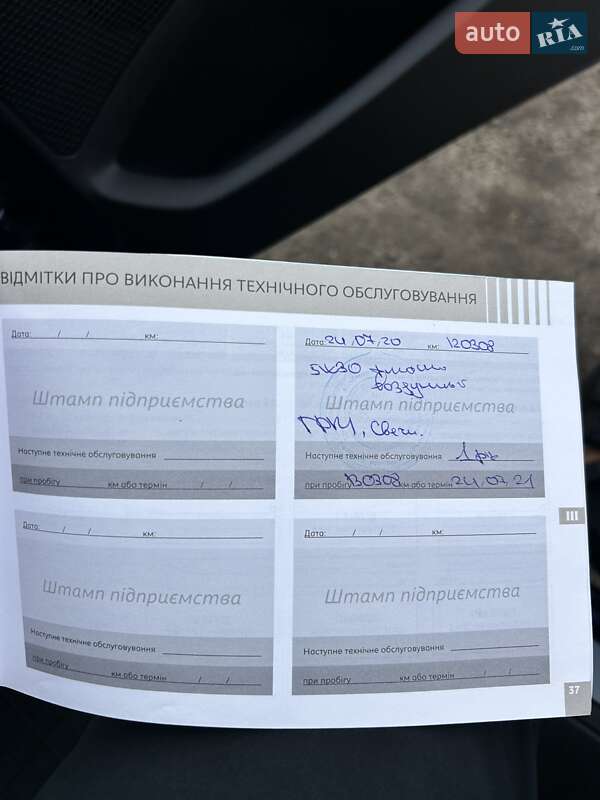 auto RIA.com
ВІДМІТКИ ПРО ВИКОНАННЯ ТЕХНІЧНОГО ОБСЛУГОВУВАННЯ
Дата: / / км:
Штамп підприємства
Наступне технічне обслуговування
при пробігу км або термін / /
Дата: 24,07,20 км: 120308
5W30
ГРМ, Свечи.
Наступне технічне обслуговування 1 рік
при пробігу 130308 км або термін 24.07.21
III
Дата: / / км:
Штамп підприємства
Наступне технічне обслуговування
при пробігу км або термін / /
Дата: / / км:
Штамп підприємства
Наступне технічне обслуговування
при пробігу км або термін / /
37